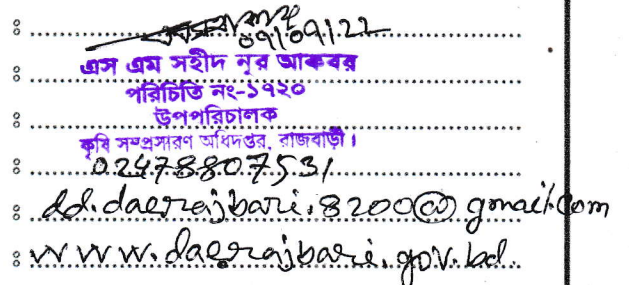 09/09/22
এস এম সহীদ নূর আকবর
পরিচিতি নং-১৭২০
উপপরিচালক
কৃষি সম্প্রসারণ অধিদপ্তর, রাজবাড়ী।
02478807531
dd.daerajbari.8200@gmail.com
www.daerajbari.gov.bd.